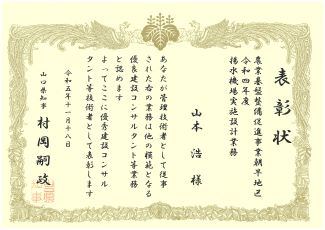 表彰状
農業基盤整備促進事業朝平地区
令和四年度
揚水機場実施設計業務
山本 浩 様
あなたが管理技術者として従事
された右の業務は他の模範となる
優良建設コンサルタント等業務
と認めます
よってここに優秀建設コンサル
タント等技術者として表彰します
令和五年十一月十八日
山口県知事 村岡嗣政